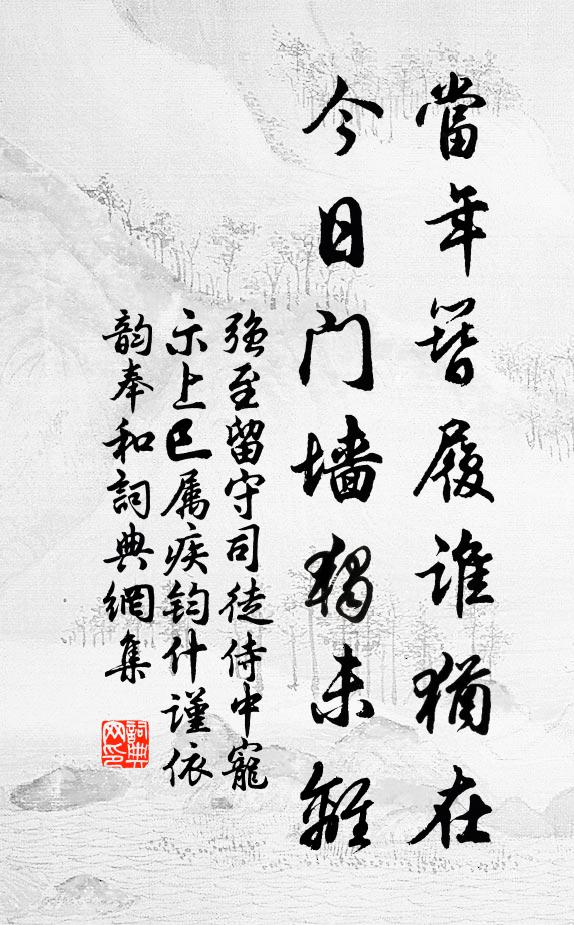 當年簪履誰猶在
今日门墙獨未離
强至留守司徒侍中寵
示上巳属疾钧什謹依
韵奉和詞典網集
詞典
网印